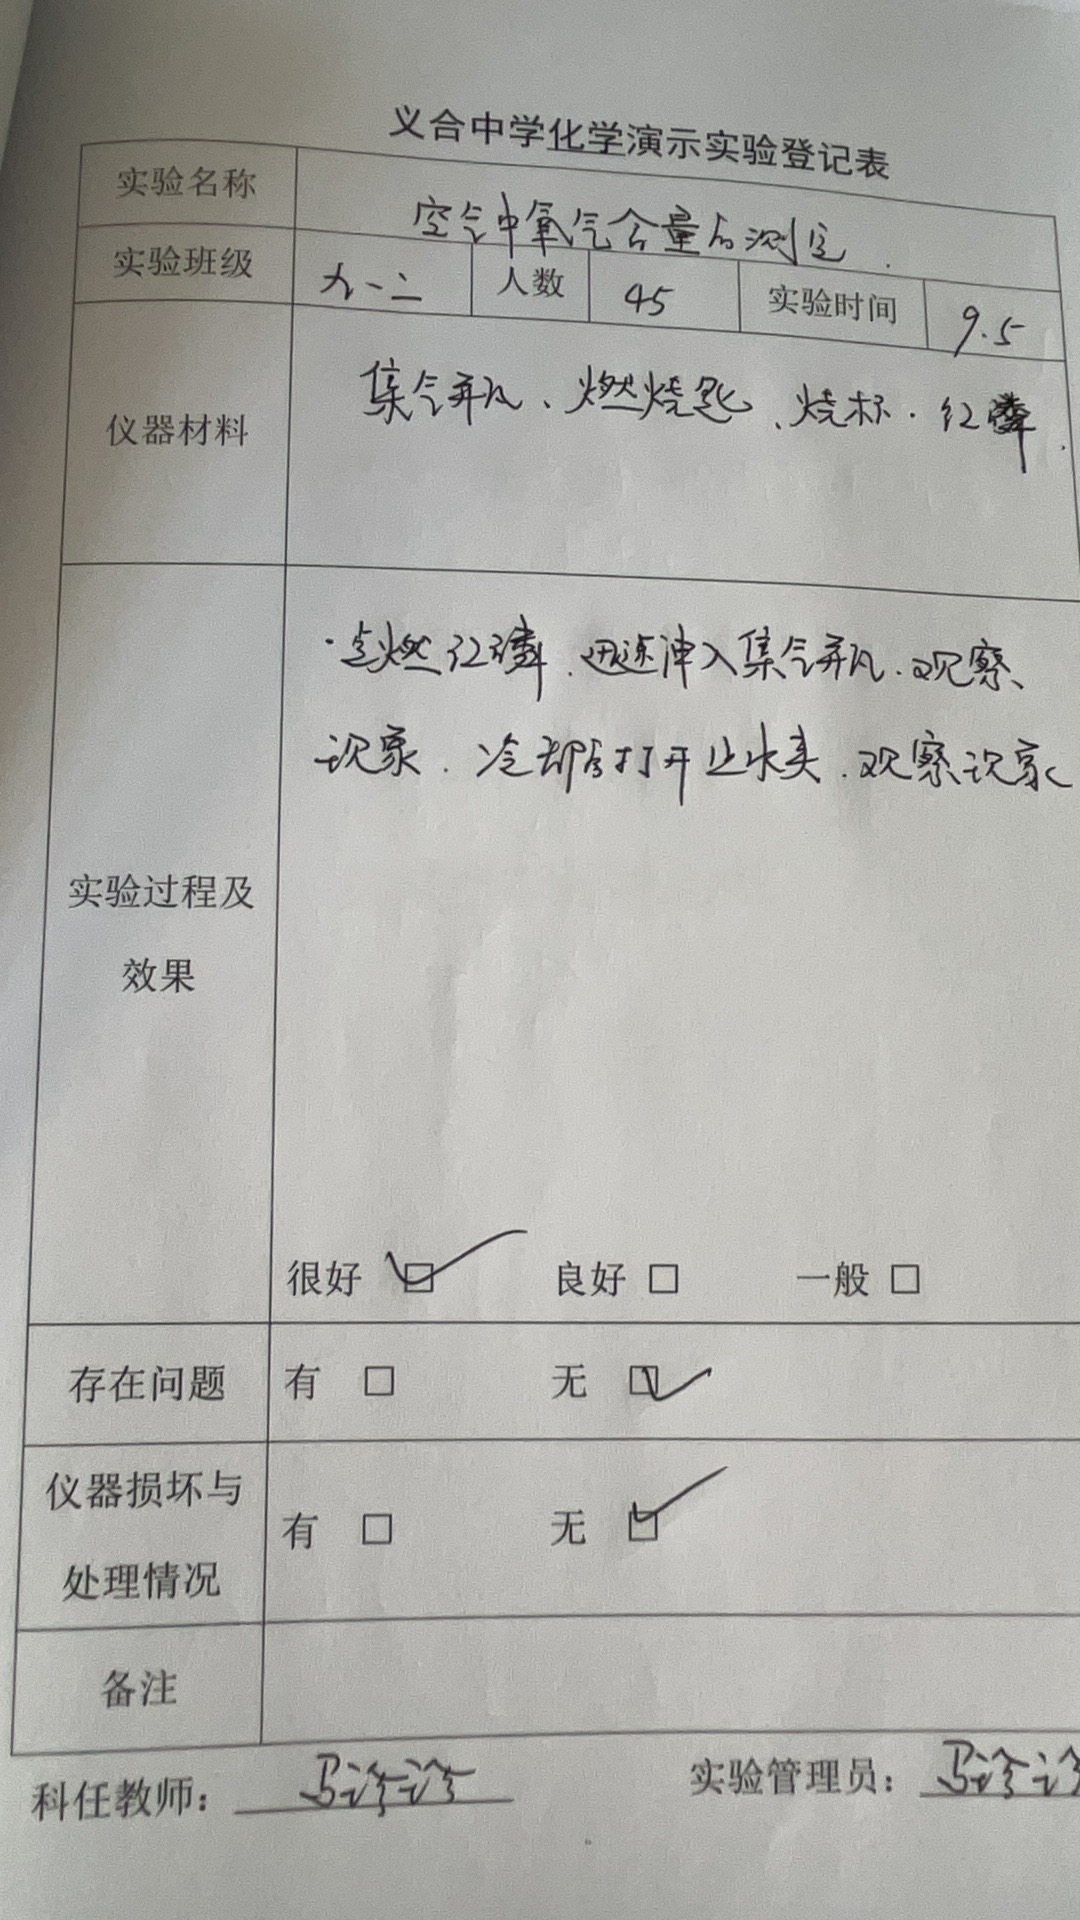 义合中学化学演示实验登记表
实验名称 空气中氧气含量的测定.
实验班级 九·二 人数 45 实验时间 9.5
仪器材料 集气瓶、燃烧匙、烧杯.红磷.
·点燃红磷.迅速伸入集气瓶.观察
现象.冷却后打开止水夹.观察现象
实验过程及
效果
很好 ☑ 良好 □ 一般 □
存在问题 有 □ 无 ☑
仪器损坏与
处理情况
有 □ 无 ☑
备注
科任教师: 马 实验管理员: 马